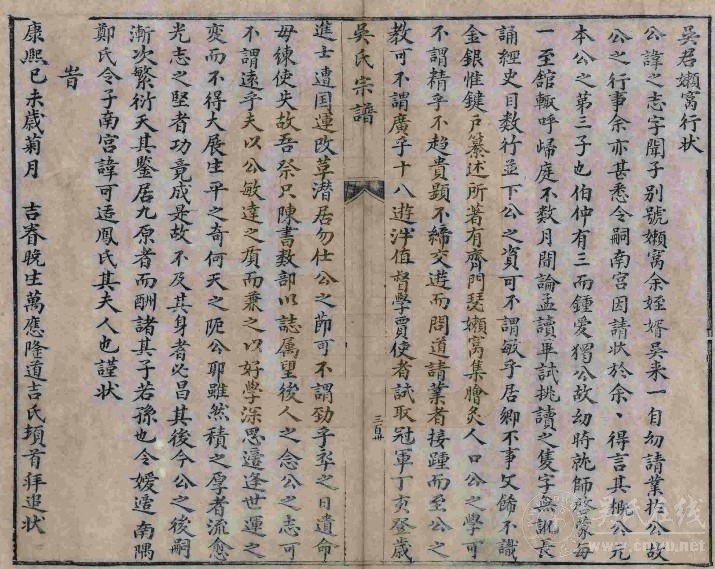 吳君嬾窩行狀
公諱之志字聞子别號嬾窩余姪婿吳来一自幼請業於公故
公之行事余亦甚悉令嗣南宫因請狀於余、得言其概公允
本公之第三子也伯仲有三而鍾愛獨公故幼時就師啓蒙每
一至舘輙呼歸庭不数月間論孟讀畢試挑讀之隻字無訛長
誦經史目数行並下公之資可不謂敏乎居鄉不事文飾不識
金銀惟鍵戶纂述所著有齊門瑟嬾窩集膾炙人口公之學可
不謂精乎不趋貴顕不締交遊而問道請業者接踵而至公之
教可不謂廣乎十八遊泮值督學賈使者試取冠軍丁亥登歲
吳氏宗譜
三百廾
進士遭国運改革潜居勿仕公之節可不謂勁乎卒之日遺命
毋錬使失故吾祭只陳書数部以誌属望後人之念公之志可
不謂遠乎夫以公敏達之質而兼之以好學深思遭逢世運之
变而不得大展生平之奇何天之阨公耶雖然積之厚者流愈
光志之堅者功竟成是故不及其身者必昌其後今公之後嗣
漸次繁衍天其鑒居九原者而酬諸其子若孫也令媛适南隅
鄭氏令子南宫諱可适鳳氏其夫人也謹状
旹
康熙己未歲菊月　吉眷晚生萬應隆道吉氏頓首拜追状
吴氏在线